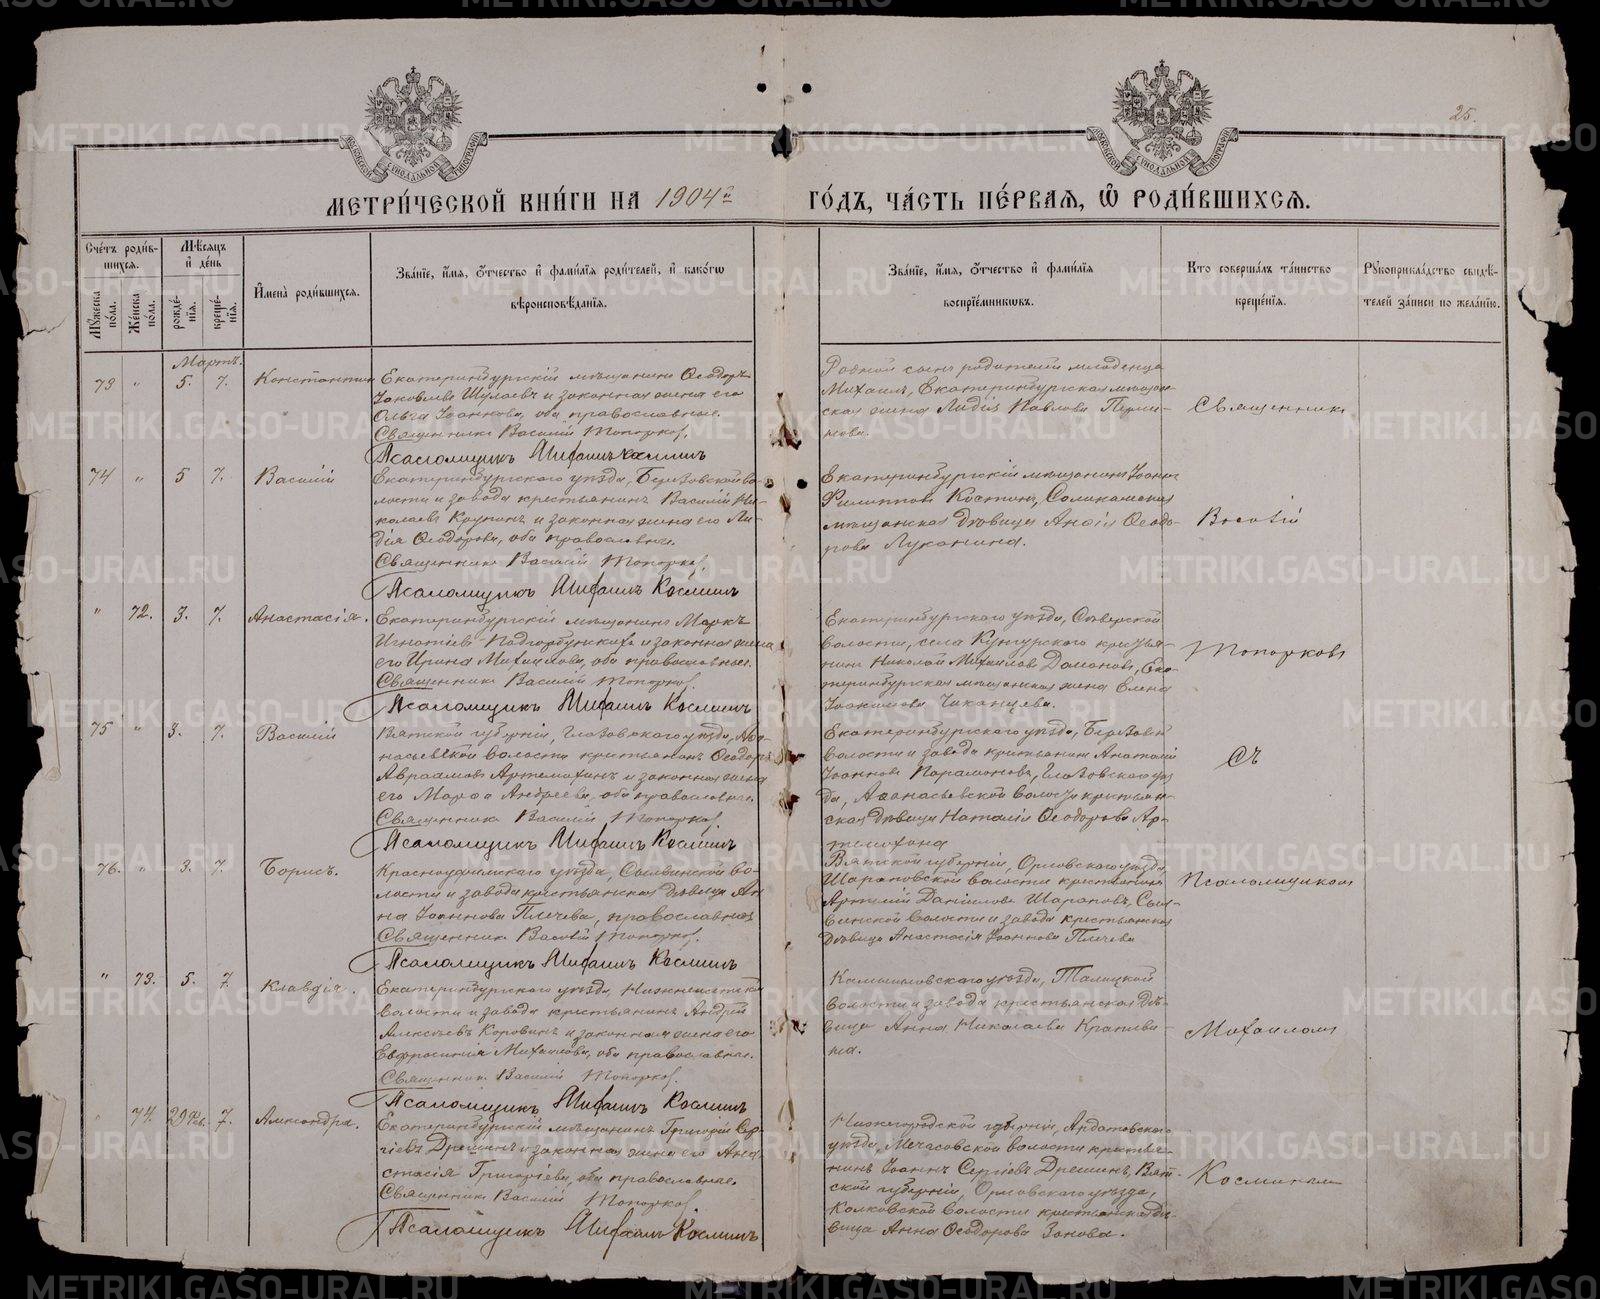 25.
МЕТРИ́ЧЕСКОЙ КНИ́ГИ НА 1904й ГО́ДЪ, ЧА́СТЬ ПЕ́РВАЯ, Ѡ РОДИ́ВШИХСЯ.
Сче́тъ роди́вшихся.
Му́жеска по́ла.
Же́нска по́ла.
Мѣ́сяцъ и де́нь
рожде́нїя.
креще́нїя.
Имена̀ роди́вшихся.
Зва́нїе, и́мя, ѻ́тчество и фами́лїя роди́телей, и како́гѡ вѣроисповѣ́данїя.
Зва́нїе, и́мя, ѻ́тчество и фами́лїя воспрїе́мникѡвъ.
Кто соверша́лъ та́инство креще́нїя.
Рꙋкоприкла́дство свидѣ́телей за́писи по жела́нїю.
Мартъ.
73 " 5. 7. Константин
Екатеринбургскій мѣщанинъ Ѳеодоръ
Іаковлевъ Шулаевъ и законная жена его
Ольга Іоаннова, оба православные.
Священникъ Василій Топорков.
Псаломщикъ Михаилъ Космин
Родной сынъ родителей младенца
Михаилъ, Екатеринбургская мѣщан-
ская жена Лидія Павлова
Священникъ
74 " 5 7. Василій
Екатеринбургскаго уѣзда, Березовской во-
лости и завода крестьянинъ Василій Ни-
колаевъ и законная жена его Ли-
дія Ѳеодорова, оба православные.
Священникъ Василій Топорков.
Псаломщикъ Михаилъ Космин
Екатеринбургскій мѣщанинъ Іоаннъ
Филиппов Костинъ, Соликамская
мѣщанская дѣвица Ѳеодо-
рова Луканина.
Василій
" 72. 3. 7. Анастасія.
Екатеринбургскій мѣщанинъ Маркъ
Игнатіевъ и законная жена
его Ирина Михаилова, оба православные.
Священникъ Василій Топорков.
Псаломщикъ Михаилъ Космин
Екатеринбургскаго уѣзда, Сѣверской
волости, села Кунгурскаго крестья-
нинъ Николай Михаиловъ Ека-
теринбургская мѣщанская жена Елена
Іоакимова
Топорковъ
75 " 3. 7. Василій
Вятской губерніи, Глазовскаго уѣзда, Аѳа-
насьевской волости крестьянинъ Ѳеодоръ
Авраамовъ и законная жена
его Марѳа Андреева, оба православные.
Священникъ Василій Топорков.
Псаломщикъ Михаилъ Космин
Екатеринбургскаго уѣзда, Березовской
волости и завода крестьянинъ Анатолій
Іоанновъ Парамоновъ, Глазовскаго уѣз-
да, Аѳанасьевской волости крестьян-
ская дѣвица Наталія Ѳеодорова Ар-
съ
76. " 3. 7. Борисъ.
Красноуфимскаго уѣзда, Сылвинской во-
лости и завода крестьянская дѣвица Ан-
на Іоаннова Плечева, православная
Священникъ Василій Топорков.
Псаломщикъ Михаилъ Космин
Вятской губерніи, Орловскаго уѣзда,
Шараповской волости крестьянинъ
Артемій Даніиловъ Шараповъ, Сыл-
винской волости и завода крестьянская
дѣвица Анастасія Іоаннова Плечева
Псаломщикомъ
" 73. 5. 7. Клавдія.
Екатеринбургскаго уѣзда
волости и завода крестьянинъ Андрей
Алексѣевъ Коровинъ и законная жена его
Евфросинія Михаилова, оба православные.
Священникъ Василій Топорков.
Псаломщикъ Михаилъ Космин
Камышловскаго уѣзда, Талицкой
волости и завода крестьянская дѣ-
вица Анна Николаева Крапиви-
на.
Михаиломъ
" 74. 29 Фев. 7. Александра.
Екатеринбургскій мѣщанинъ Григорій Сер-
гіевъ Дрешинъ и законная жена его Ана-
стасія Григоріева, оба православные.
Священникъ Василій Топорков.
Псаломщикъ Михаилъ Космин
Нижегородской губерніи, Ардатовскаго
уѣзда, волости крестья-
нинъ Іоаннъ Сергіевъ Дрешинъ, Вят-
ской губерніи, Орловскаго уѣзда,
Колковской волости крестьянская дѣ-
вица Анна Ѳеодорова Зонова.
Косминымъ
METRIKI.GASO-URAL.RU